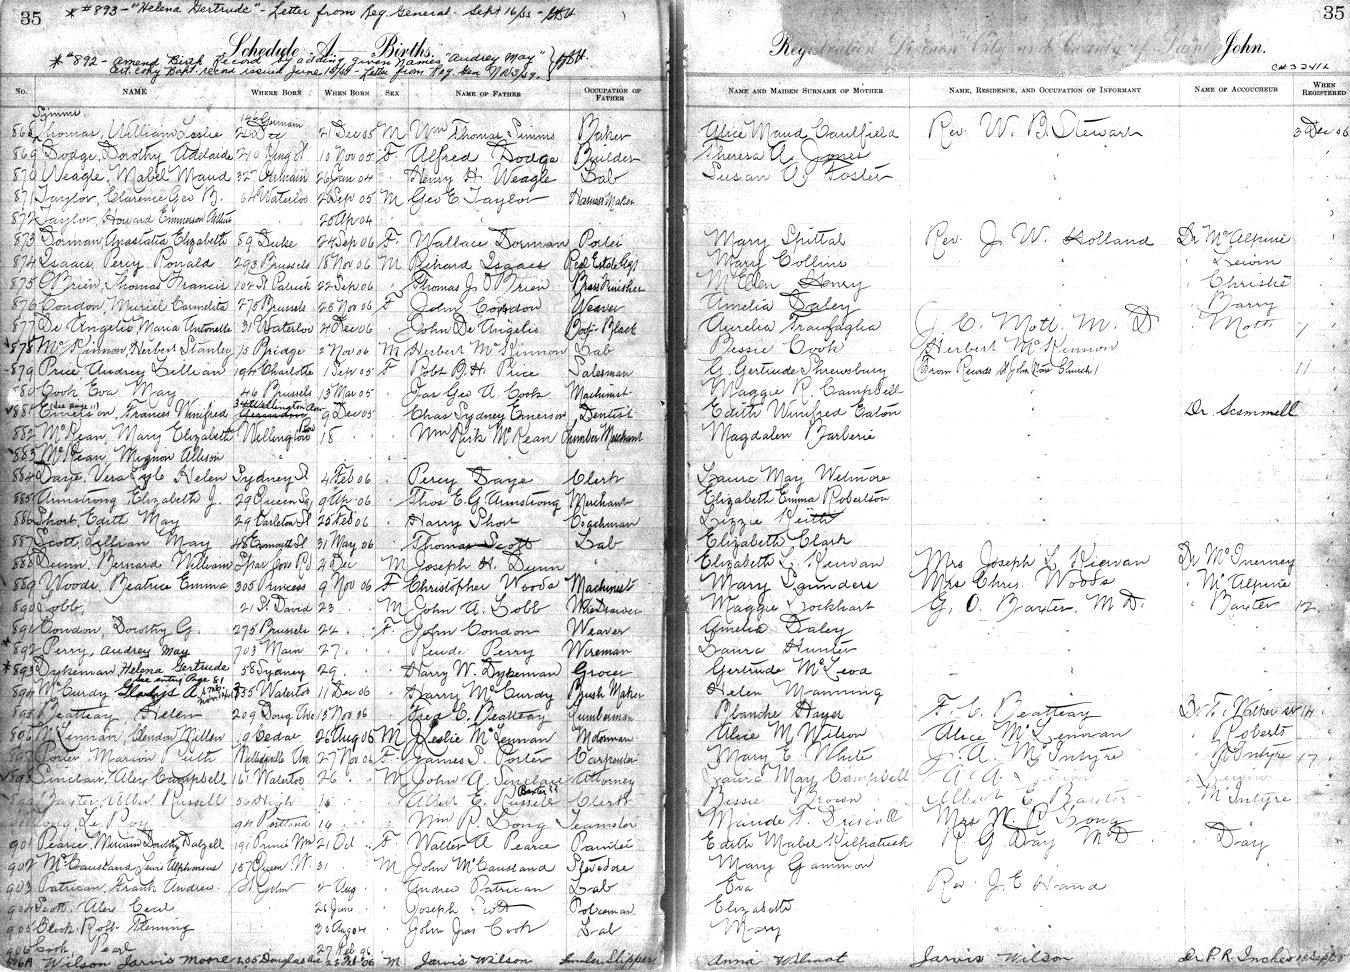 35
* #893 - "Helena Gertrude" - Letter from Reg. General - Sept 16/55 -
35
Schedule A.—Births.
Registration Division City and County of Saint John.
* #892 - Amend Birth Record by adding given names "Audrey May"
Cert. copy Bapt. record issued June - Letter from Reg. Gen Nov
No. NAME WHERE BORN WHEN BORN SEX NAME OF FATHER OCCUPATION OF FATHER NAME AND MAIDEN SURNAME OF MOTHER NAME, RESIDENCE, AND OCCUPATION OF INFORMANT NAME OF ACCOUCHEUR WHEN REGISTERED
Simms
868 Thomas, William Leslie 21 Dec 05 M Wm Thomas Simms Baker Alice Maud Caulfield Rev. W. B. Stewart 3 Dec 06
869 Dodge, Dorothy Adelaide 210 King St 10 Nov 05 F Alfred Dodge Builder Theresa A Jones
870 Weagle Mabel Maud 327 Germain 26 Jan 04 Henry H. Weagle Lab Susan Foster
871 Taylor, Clarence Geo B. 64 Waterloo 2 Sep 05 M Geo E Taylor Harness Maker
872 Taylor, Howard Emmerson 20 Ap 04
873 Dorman, Anastatia Elizabeth 59 Duke 24 Sep 06 F. Wallace Dorman Porter Mary Spittal Rev. J. W. Holland Dr McAlpine
874 Isaacs, Percy Ronald 293 Brussels 18 Nov 06 M Richard Isaacs Real Estate Agt Mary Collins Lewin
875 O'Brien, Thomas Francis 102 St Patrick 22 Sep 06 Thomas J. O'Brien Brass Finisher M Ellen Henry Christie
876 Condon, Muriel Carmelita 275 Brussels 25 Nov 06 F John Condon Weaver Amelia Daley Barry
877 De Angelis, Maria Antonette 31 Waterloo 4 Dec 06 John De Angelis Boot Black Aurelia J. C. Mott. M. D Mott 7
878 McKinnon, Herbert Stanley 75 Bridge 2 Nov 06 M Herbert McKinnon Lab Bessie Cook Herbert McKinnon
879 Price Audrey Lillian 194 Charlotte 1 Sep 05 F Robt B. H. Price Salesman G. Gertrude Shrewsbury (From Records St John Church) 11
880 Cook Eva May 46 Brussels 13 Mar 05 Jas Geo A. Cook Machinist Maggie R Campbell
881 Emerson, Frances Winifred (See page 11) 34 Wellington Row 9 Dec 05 Chas Sydney Emerson Dentist Edith Winifred Eaton Dr. Scammell
882 McKean, Mary Elizabeth Wellington Row 15 Wm Kirk McKean Lumber Merchant Magdalen Barberie
883 McKean, Mignon Allison
884 Daye, Vera Helen Sydney St 4 Feb 06 Percy Daye Clerk Laura May Wetmore
885 Armstrong Elizabeth J. 29 Queen Sq 9 Apr 06 Thos E. G. Armstrong Merchant Elizabeth Emma Robertson
886 Short, Edith May 29 Carleton St 25 Feb 06 Harry Short Coachman Lizzie Keith
887 Scott, Lillian May 48 Exmouth St 31 May 06 Thomas Scott Lab Elizabeth Clark
888 Dunn, Bernard William Spar Cove Rd 2 Dec M Joseph H. Dunn Elizabeth L. Kiervan Mrs Joseph L Kiervan Dr McInerney
889 Woods, Beatrice Emma 305 Princess 9 Nov 06 F Christopher Woods Machinist Mary Saunders Mrs Chris. Woods McAlpine
890 Lobb 21 St David 23 M John A. Lobb Maggie Lockhart G. O. Baxter, M D. Baxter 12
891 Condon, Dorothy G. 275 Brussels 22 F. John Condon Weaver Amelia Daley
* 892 Perry, Audrey May 703 Main 27 Perry Wireman Laura Hunter
* 893 Dykeman, Helena Gertrude 58 Sydney 29 Harry W. Dykeman Grocer Gertrude McLeod
See entry Page 81
894 McCurdy Gladys A. 85 Waterloo 11 Dec 06 Harry McCurdy Brush Maker Helen Manning
895 Beatteay Helen 209 Doug Ave 15 Nov 06 Fred E. Beatteay Lumberman Blanche Hayes F. E. Beatteay 14
896 McLennan, Clendon Willen 19 Cedar 26 Aug 06 M Leslie McLennan Motorman Alice M Wilson Alice McLennan Roberts
897 Porter, Marion Ruth 27 Nov 06 F. James S. Porter Carpenter Mary E. White J. A. McIntyre McIntyre 17
898 Sinclair, Alex Campbell 161 Waterloo 26 M John A. Sinclair Attorney Laura May Campbell Lewin
Baxter, Russell 56 High Albert E. Russell Baxter?? Clerk Bessie Brown Albert E Baxter McIntyre
Long L. Roy 94 Portland 14 Wm P. Long Teamster Maude Driscoll Mrs W. P Long
901 Pearce, Miriam Dorothy Dalzell 191 Prince Wm 21 Oct F Walter A Pearce Painter Edith Mabel Kilpatrick R G Day M D Day
902 McCausland Lewis Alphonsus 157 Queen W. 31 M John McCausland Stevedore Mary Gammon
903 Patrican, Frank Andrew St John 2 Aug Andrew Patrican Lab Eva Rev. J. E Hand
904 Scott, Alex Cecil 26 June Joseph Scott Policeman Elizabeth
905 Cook, Robt. Fleming 30 Aug 04 John Jas Cook Lab Mary
906 Cook, Pearl 27 Feb 06
906A Wilson Jarvis Moore 205 Douglas Ave 23 Feb 06 M Jarvis Wilson Lumber Shipper Anna Wilmot Jarvis Wilson Dr P. R. Inches